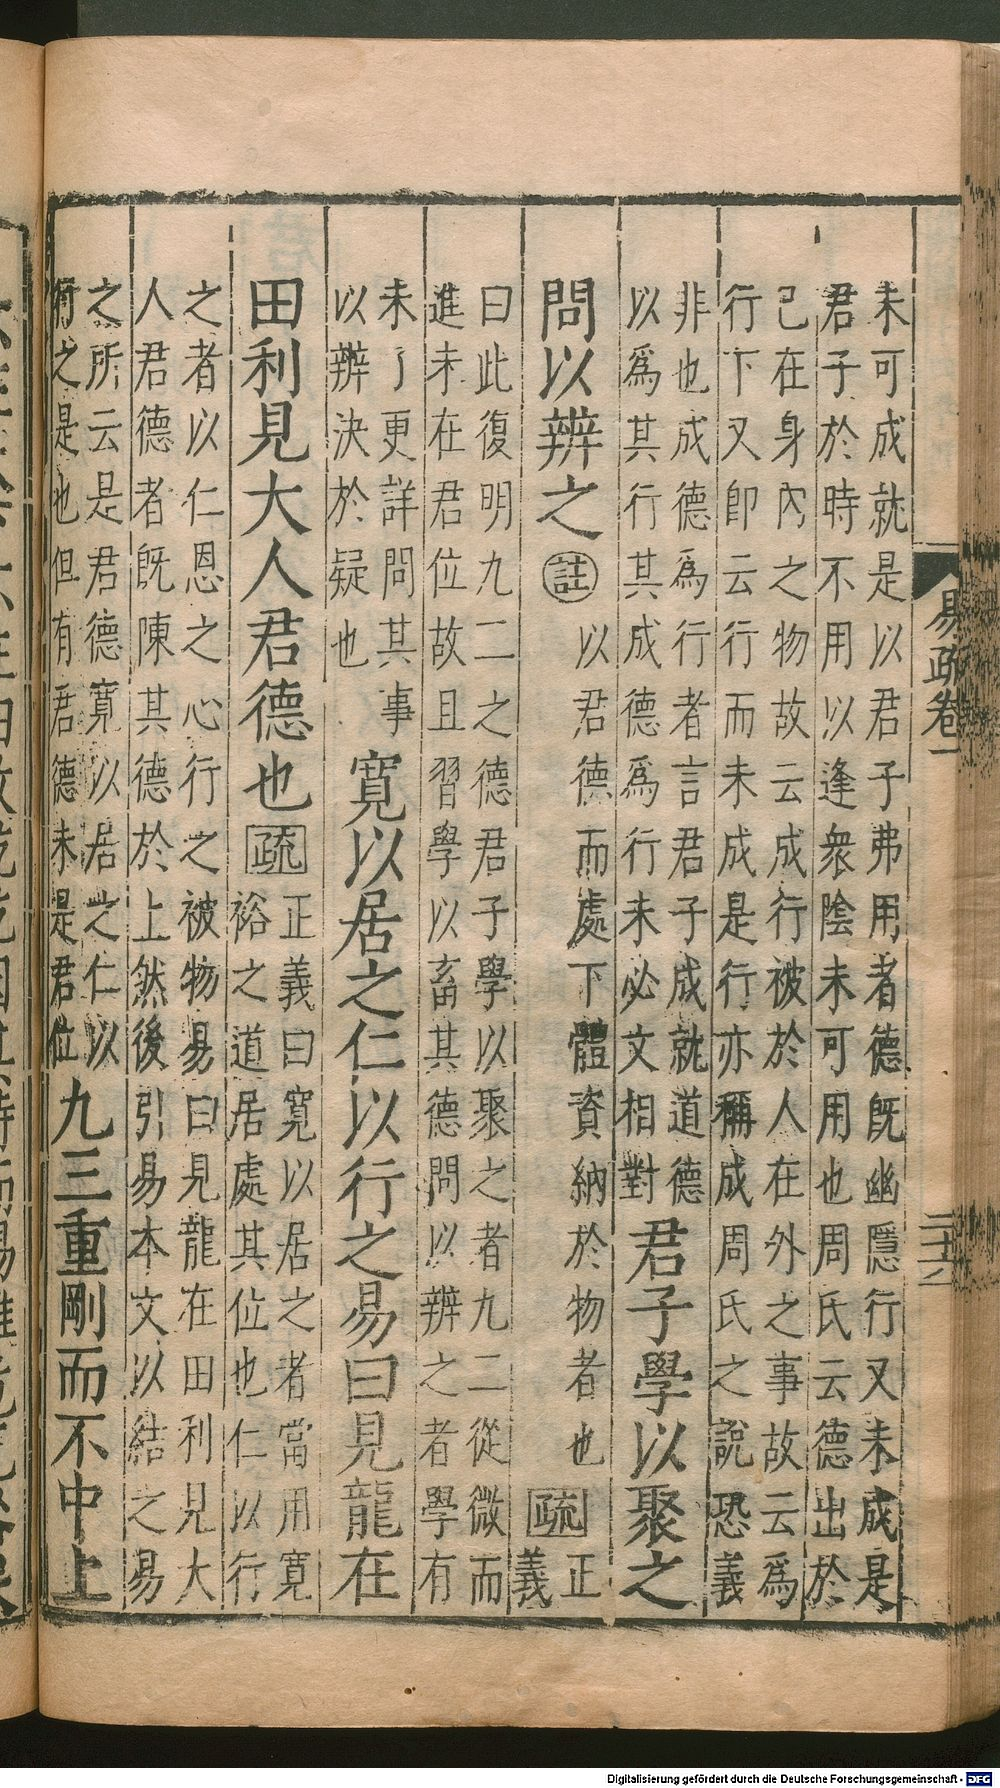 未可成就是以君子弗用者德旣幽隱行又未成是
君子於時不用以逢衆陰未可用也周氏云德出於
己在身內之物故云成行被於人在外之事故云爲
行下又卽云行而未成是行亦稱成周氏之說恐義
非也成德爲行者言君子成就道德
以爲其行其成德爲行未必文相對
君子學以聚之
問以辨之
註
以君德而處下體資納於物者也
疏
正
義
曰此復明九二之德君子學以聚之者九二從微而
進未在君位故且習學以畜其德問以辨之者學有
未了更詳問其事
以辨決於疑也
寬以居之仁以行之易曰見龍在
田利見大人君德也
疏
正義曰寬以居之者當用寬
裕之道居處其位也仁以行
之者以仁恩之心行之被物易曰見龍在田利見大
人君德者旣陳其德於上然後引易本文以結之易
之所云是君德寬以居之仁以
行之是也但有君德未是君位
九三重剛而不中上
易疏卷一
Digitalisierung gefördert durch die Deutsche Forschungsgemeinschaft - DFG